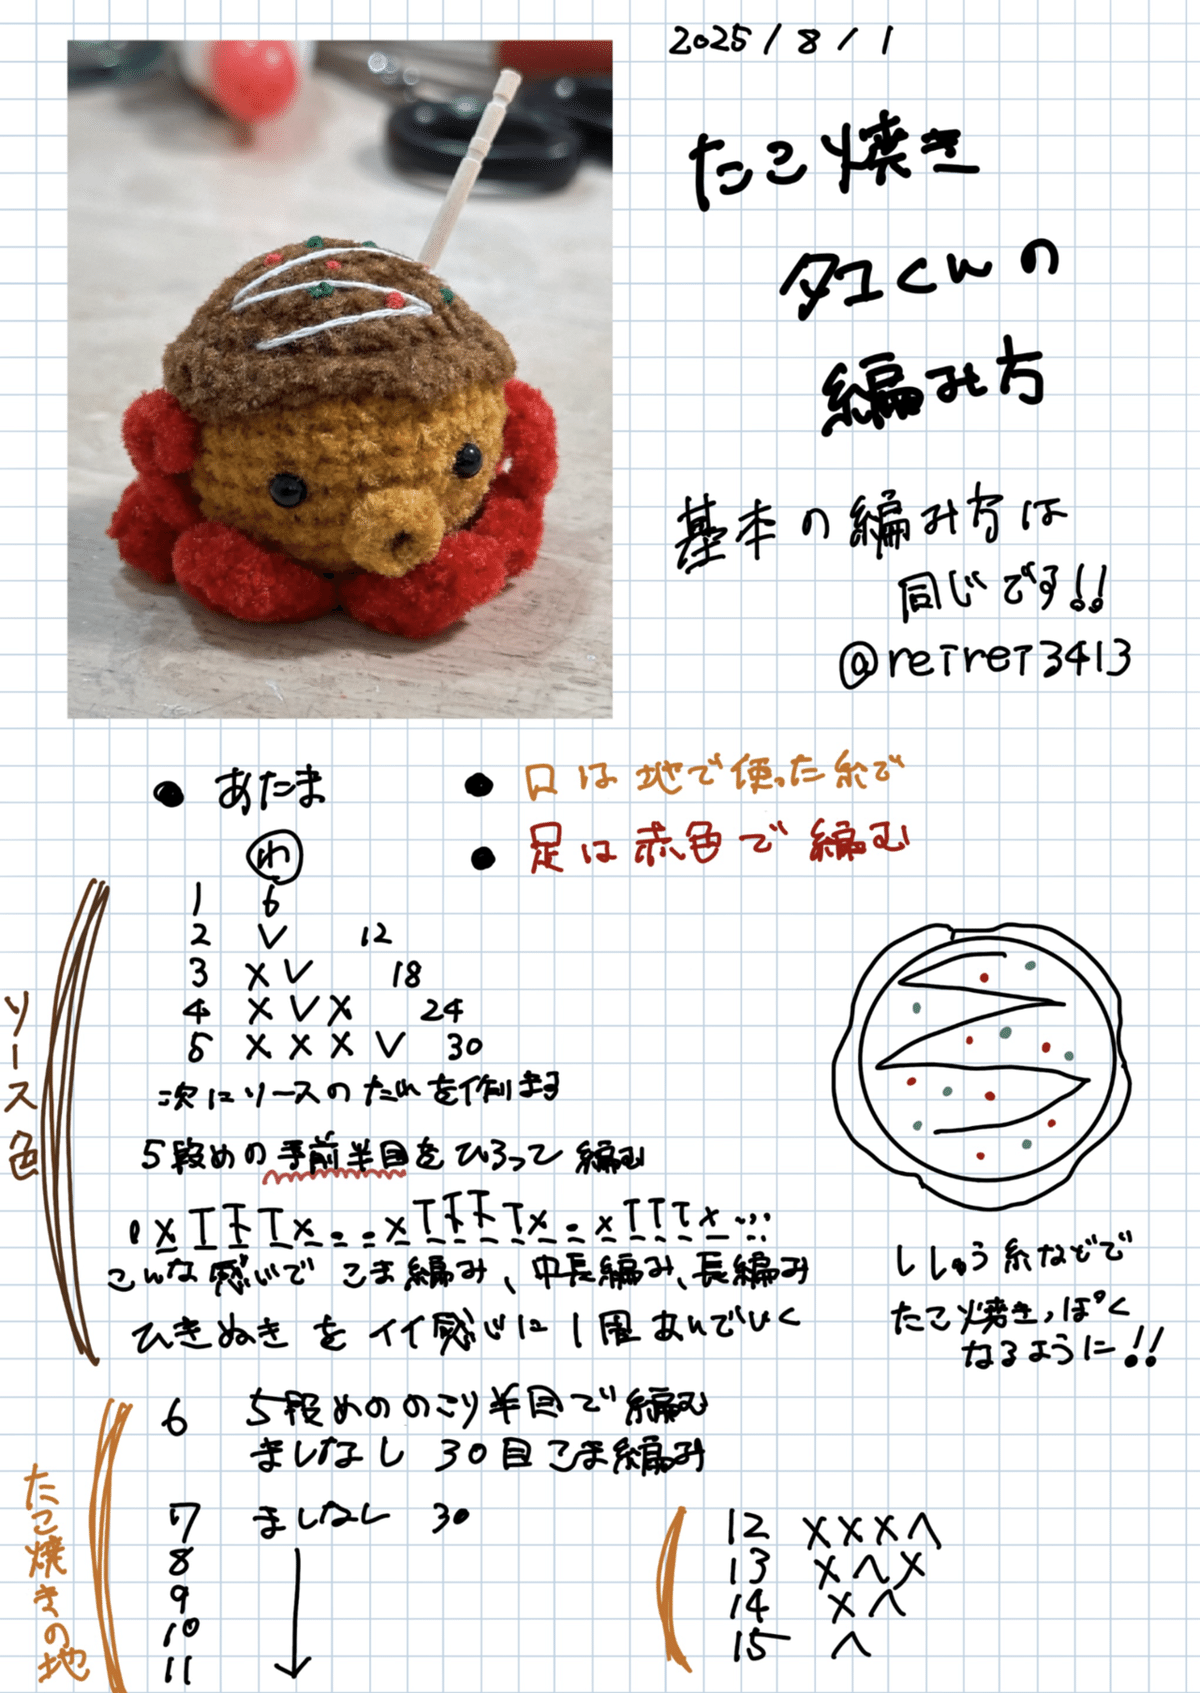 2025/8/1
たこ焼き
タコくんの
編み方
基本の編み方は
同じです!!
@reirei3413
● あたま
わ
1 6
2 V 12
3 X V 18
4 X V X 24
5 X X X V 30
次にソースのたれを作ります
5段めの手前半目をひろって編む
こんな感じでこま編み、中長編み、長編み
ひきぬきをイイ感じに1周あんでいく
ソース色
● 口は地で使った糸で
● 足は赤色で編む
ししゅう糸などで
たこ焼きっぽく
なるように!!
6 5段めののこり半目で編む
ましなし 30目こま編み
7 ましなし 30
8
9
10
11
たこ焼きの地
12 X X X へ
13 X へ X
14 X へ
15 へ